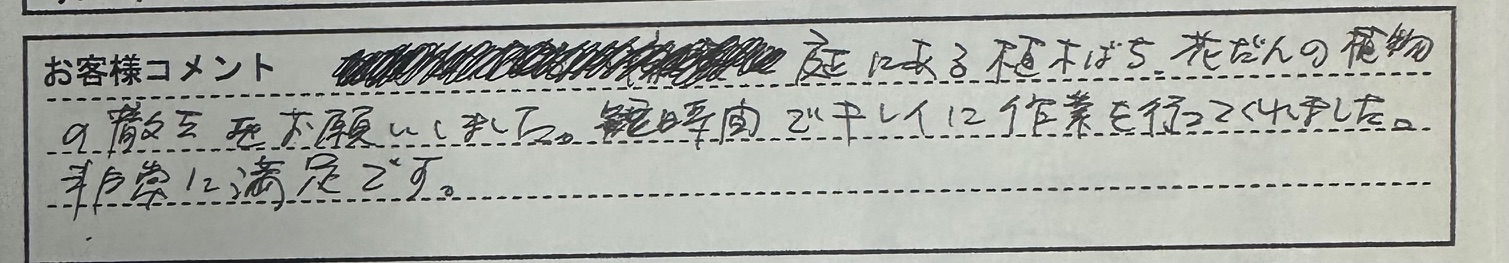 お客様コメント 庭にある植木ばち、花だんの植物
の撤去をお願いしました。短時間でキレイに作業を行ってくれました。
非常に満足です。